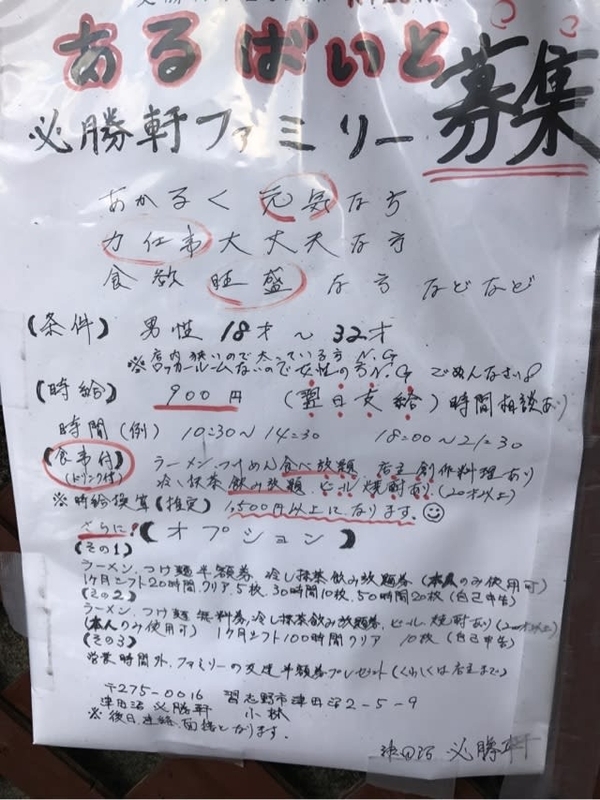 あるばいと募集
必勝軒ファミリー
あかるく元気な方
力仕事大丈夫な方
食欲旺盛な方などなど
【条件】男性18才〜32才
※店内狭いので太っている方N.G
ロッカールームないので女性の方N.G ごめんなさい
【時給】900円(翌日支給)時間相談あり
時間(例)10:30〜14:30 18:00〜21:30
【食事付】ラーメン、つけめん食べ放題、店主創作料理あり
(ドリンク付)冷し抹茶飲み放題、ビール焼酎あり(20才以上)
※時給換算(推定)1,500円以上になります。
さらに!【オプション】
(その1)
ラーメン、つけ麺半額券 冷し抹茶飲み放題券(本人のみ使用可)
1ヶ月シフト20時間クリア5枚、30時間10枚、50時間20枚(自己申告)
(その2)
ラーメン、つけ麺無料券、冷し抹茶飲み放題券、ビール焼酎あり(20才以上)
(本人のみ使用可)1ヶ月シフト100時間クリア 10枚(自己申告)
(その3)
営業時間外、ファミリーの友達半額券プレゼント(くわしくは店主まで)
〒275-0016 習志野市津田沼2-5-9
津田沼 必勝軒 小林
※後日連絡、面接となります。
津田沼 必勝軒